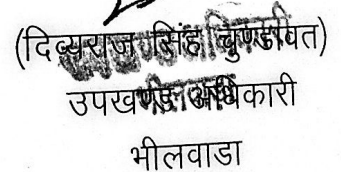 (दिव्यराज सिंह चुण्डावत)
उपखण्ड अधिकारी
भीलवाडा